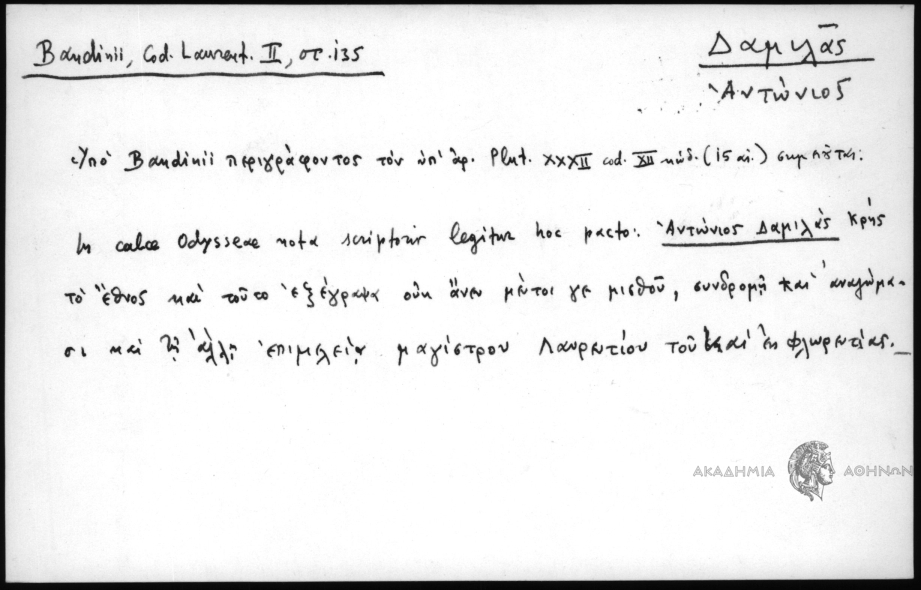 Bandinii, Cod. Laurent. II, στ. 135
Δαμιλᾶς
Ἀντώνιος
Ὑπὸ Bandinii περιγράφοντος τὸν ὑπ' ἀρ. Plut. XXXII cod. XII κώδ. (15 αἰ.) σημειοῦται:
In calce Odysseae nota scriptoris legitur hoc pacto: Ἀντώνιος Δαμιλᾶς Κρὴς
τὸ ἔθνος καὶ τοῦτο ἐξέγραψα οὐκ ἄνευ μέντοι γε μισθοῦ, συνδρομῇ καὶ ἀναλώμα-
σι καὶ τῇ ἄλλῃ ἐπιμελείᾳ μαγίστρου Λαυρεντίου τοῦ καὶ ἐκ Φλωρεντίας._
ΑΚΑΔΗΜΙΑ ΑΘΗΝΩΝ